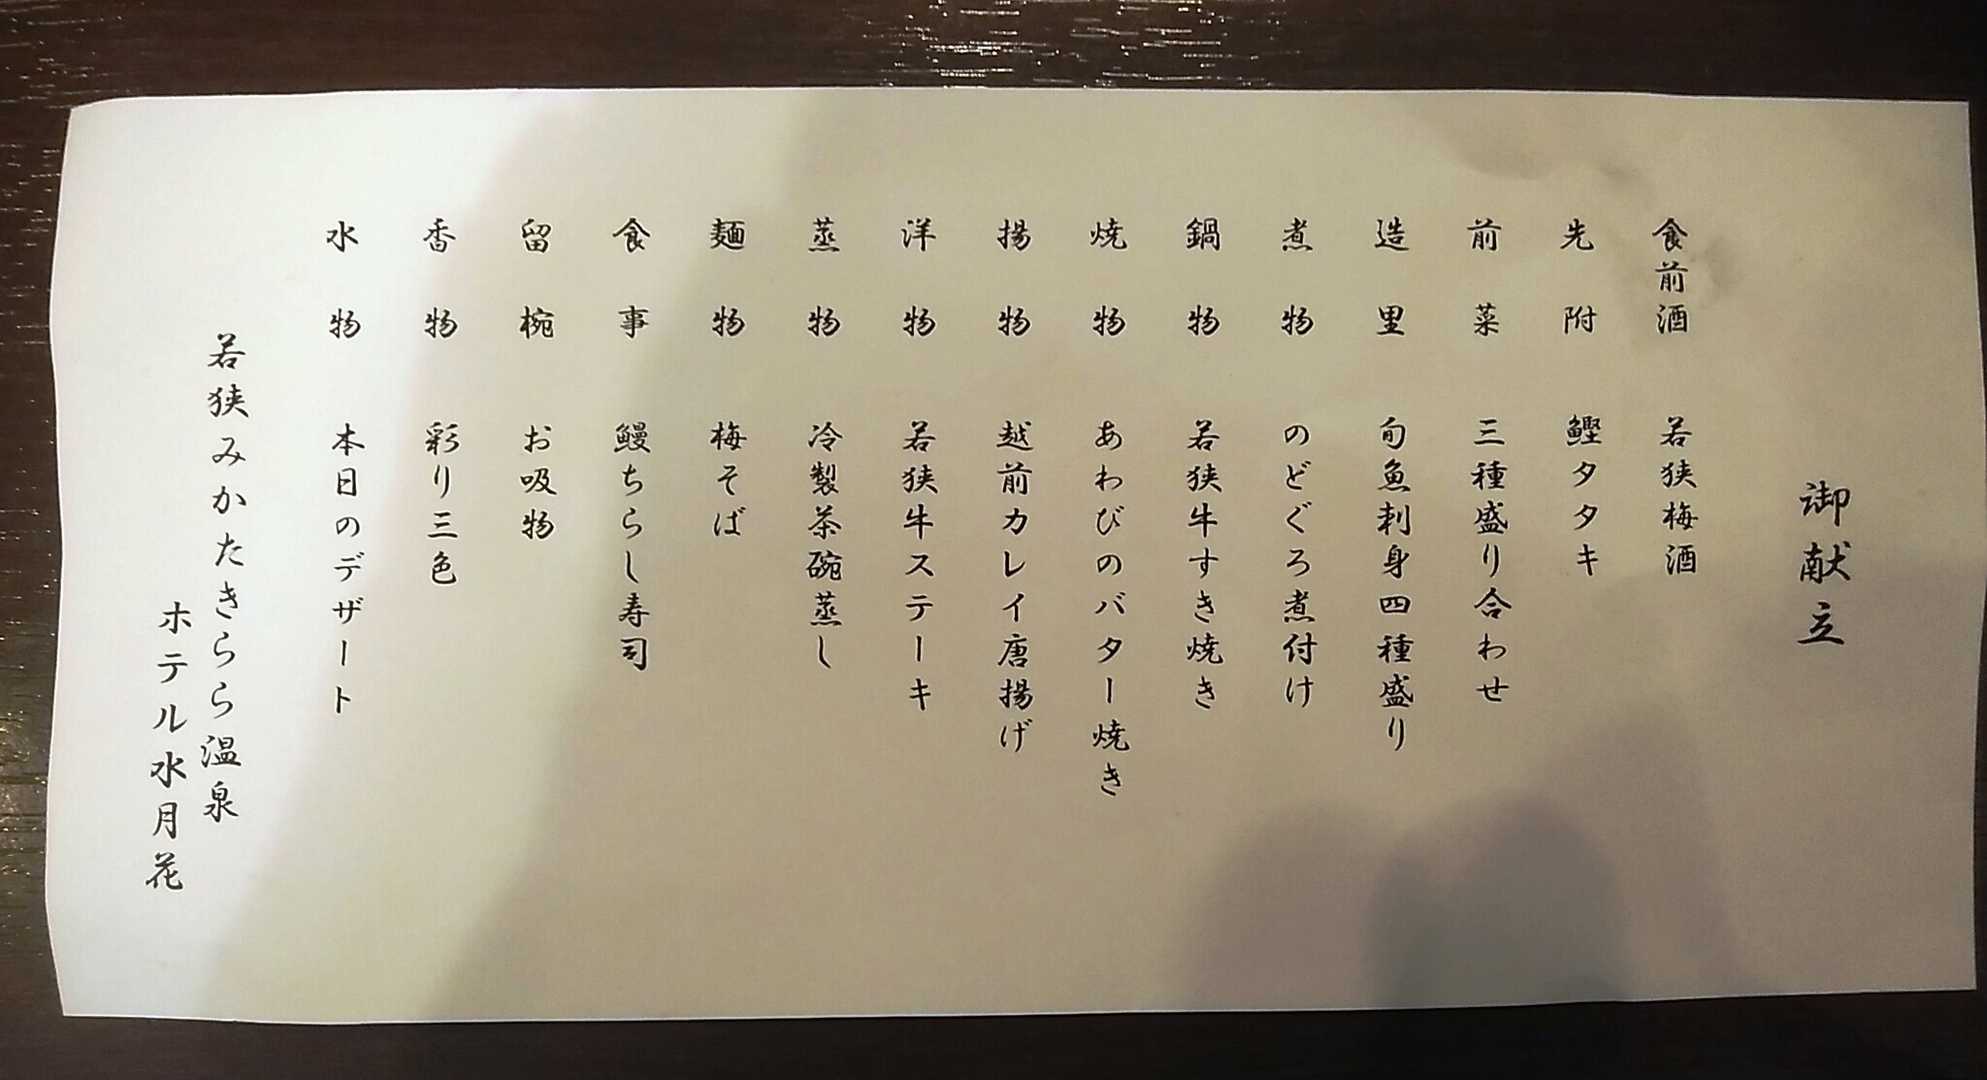 御献立
食前酒 若狭梅酒
先附 鰹タタキ
前菜 三種盛り合わせ
造里 旬魚刺身四種盛り
煮物 のどぐろ煮付け
鍋物 若狭牛すき焼き
焼物 あわびのバター焼き
揚物 越前カレイ唐揚げ
洋物 若狭牛ステーキ
蒸物 冷製茶碗蒸し
麺物 梅そば
食事 鰻ちらし寿司
留椀 お吸物
香物 彩り三色
水物 本日のデザート
若狭みかたきらら温泉
ホテル水月花